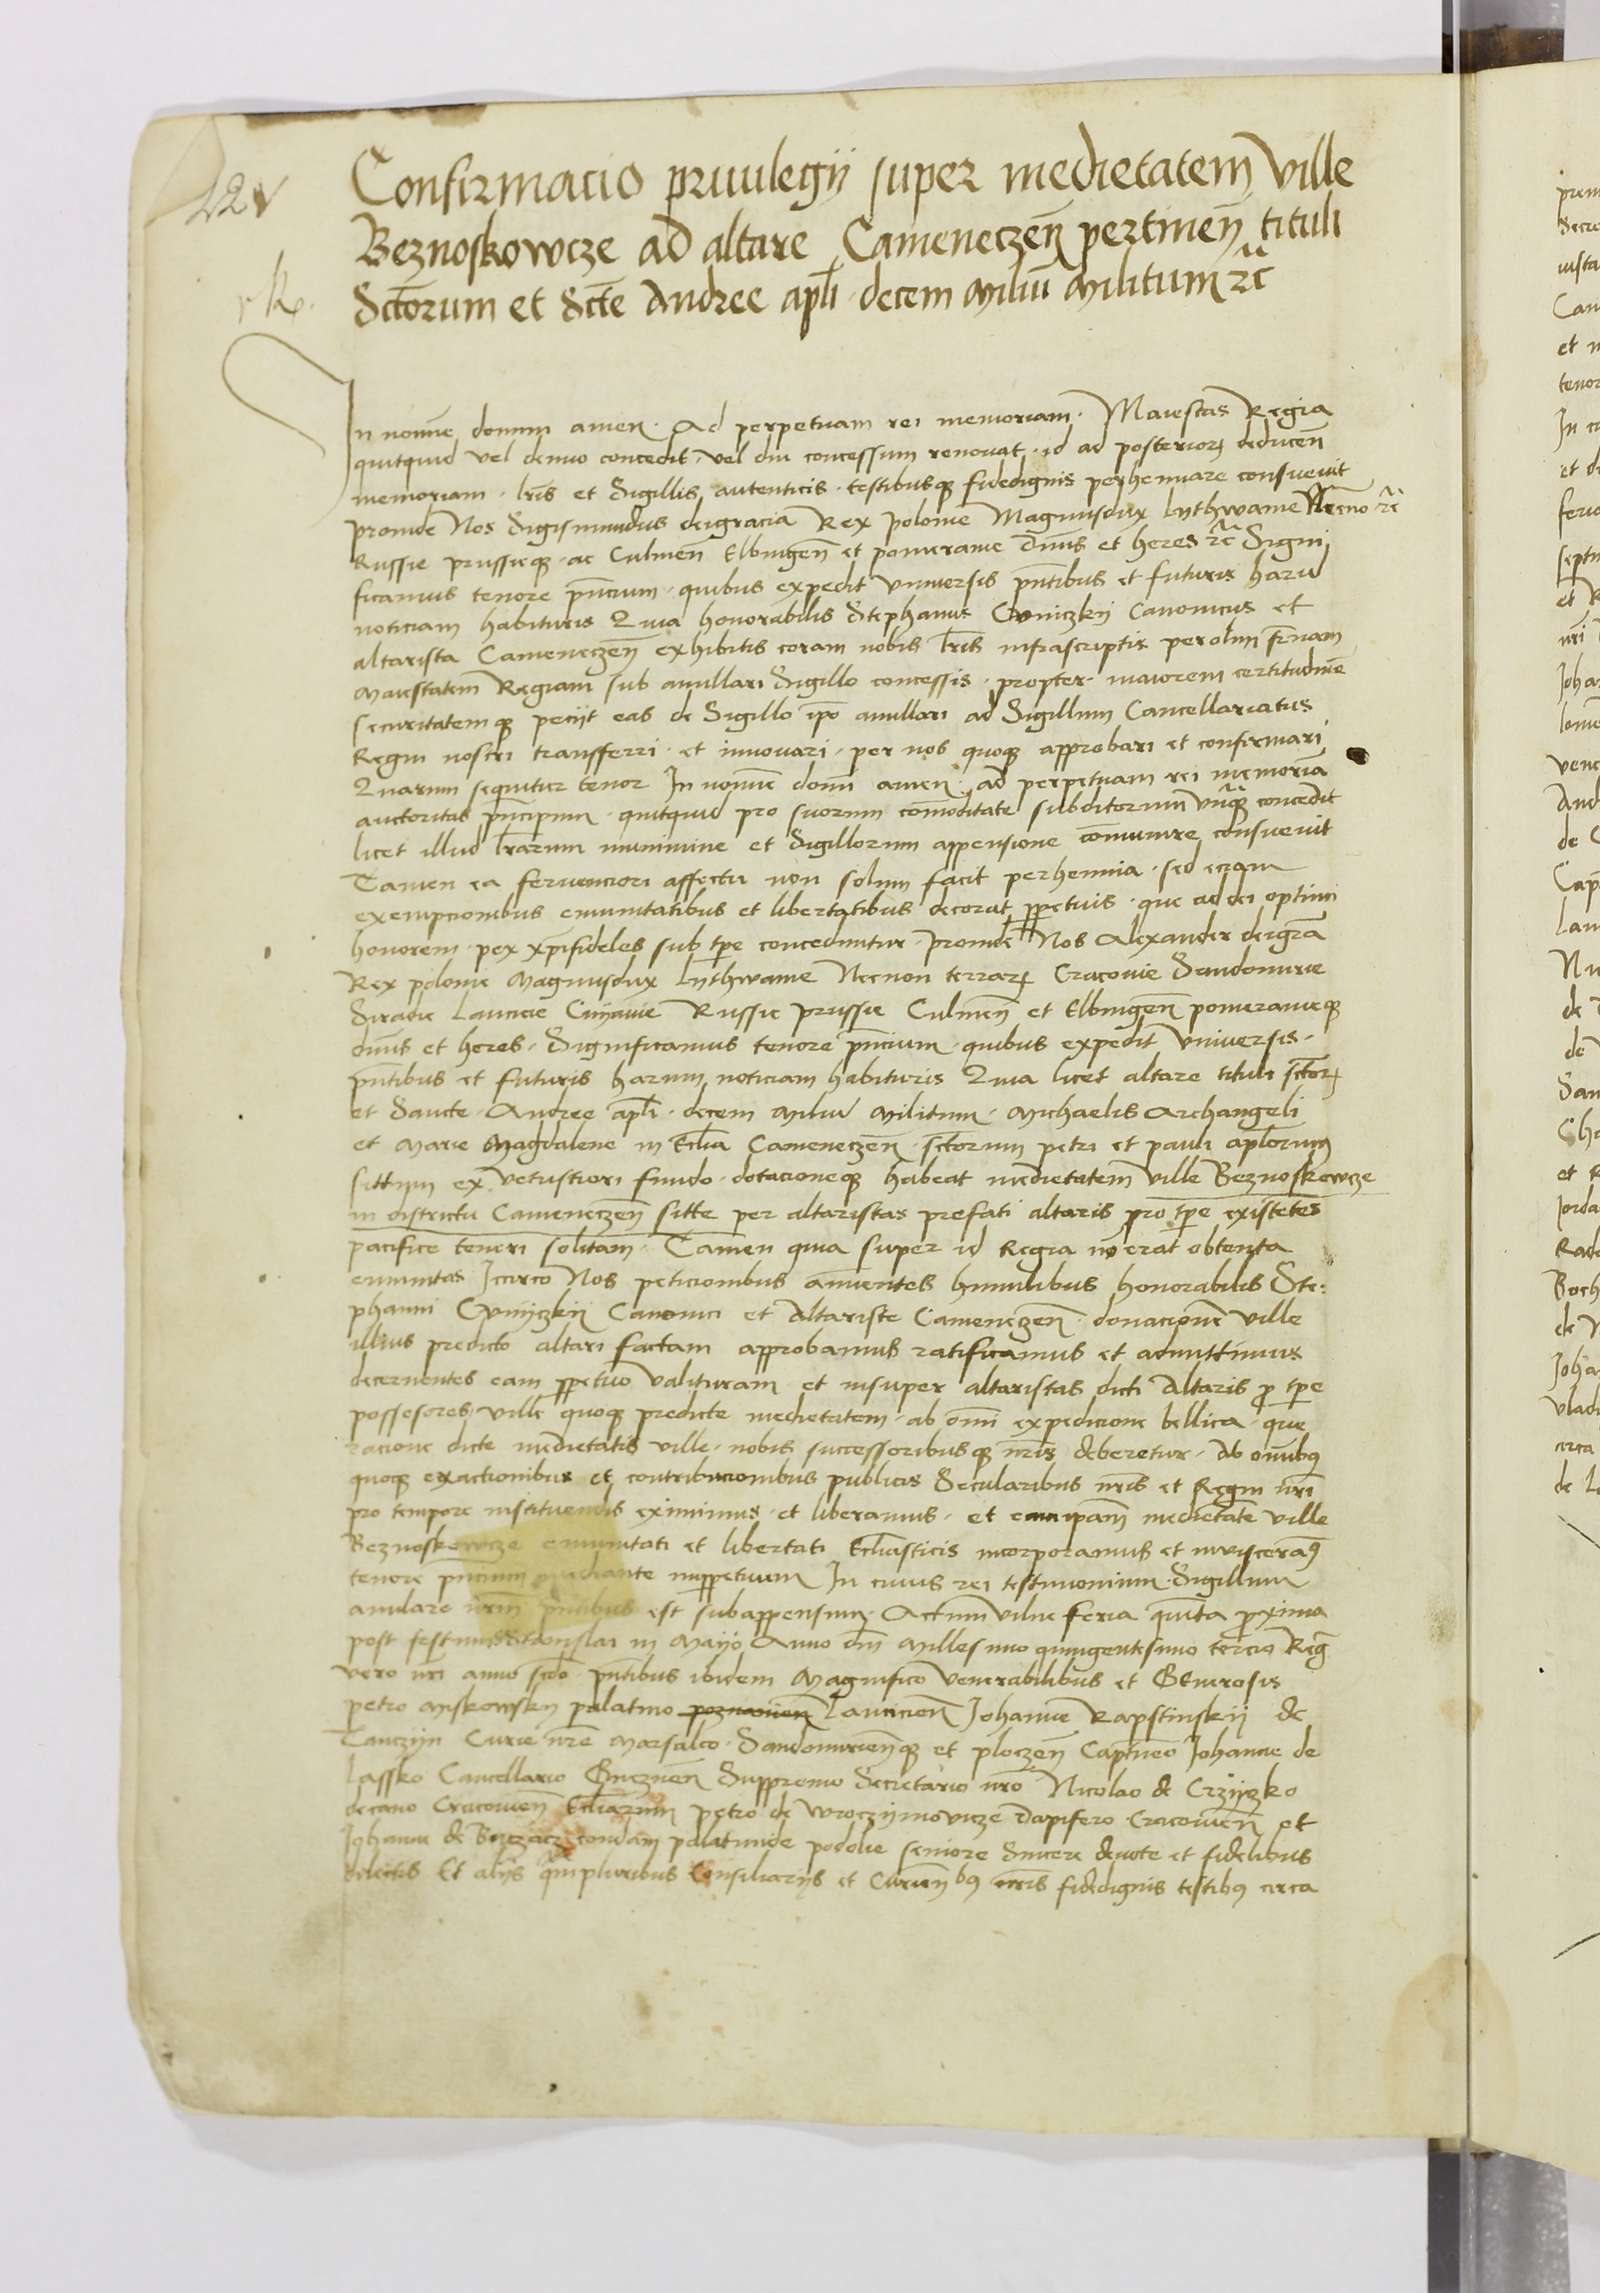 22v
rk.
Confirmacio priuilegij super medietatem ville
Beznoskowcze ad altare Cameneczen pertinen tituli
Sctorum et Scte Andree apli decem Miliu Militum rc
In nomine domini amen. Ad perpetuam rei memoriam. Maiestas Regia
quitquid vel denuo concedit. vel diu concessum renouat. id ad posteriorum deducen
memoriam. lris et Sigillis autenticis. testibusque fidedignis perhennare consueuit
proinde Nos Sigismundus deigracia Rex polonie Magnusdux lythwanie Necno rc
Russie prussieque. ac Culmen Elbingen et pomeranie dnus et heres rc Signi
ficamus tenore pncium. quibus expedit vniuersis pntibus et futuris haru
noticiam habituris Quia honorabilis Stephanus Cyniczkij Canonicus et
altarista Cameneczen exhibitis coram nobis lris infrascriptis per olim frnam
maiestatem Regiam sub anullari Sigillo concessis. propter. maiorem certitudine
securitatemque peciit eas de Sigillo ipo anullari ad Sigillum Cancellariatus
Regni nostri transferri. et innouari. per nos quoque approbari et confirmari
Quarum sequitur tenor In nomine domi amen. ad perpetuam rei memoria
auctoritas pncipum. quitquid pro suorum comoditate subditorum vnque concedit
licet illud lrarum munimine et Sigillorum appensione comunire consueuit
Tamen ea feruenciori affectu non solum facit perhennia. sed eciam
exempcionibus emunitatibus et libertatibus decorat ppetuis. que ad dei optimi
honorem. per xpifideles sub tpe conceduntur. proinde Nos Alexander deigra
Rex polonie Magnusdux lythwanie Necnon terrarum Cracouie Sandomirie
Siradie Lancicie Cuyauie Russie prussie Culmen et Elbingen pomeranieque
dnus et heres. Significamus tenore pncium. quibus expedit vniuersis.
pntibus et futuris harum noticiam habituris Quia licet altare tituli sctorum
et Sancte. Andree apli. decem Miliu Militum. Michaelis Archangeli
et Marie Magdalene in Eclia Cameneczen. sctorum petri et pauli aplorum
sittum ex vetustiori fundo. dotacioneque habeat medietatem ville Beznoskowcze
in districtu Cameneczen sitte per altaristas prefati altaris pro tpe existetes
pacifice teneri solitam. Tamen quia super id Regia no erat obtenta
emunitas Iccirco Nos peticionibus annuentes humilibus honorabilis Ste:
phanni Cyniyczkij Canonici et Altariste Cameneczen. donacione ville
illius predicto altari factam approbamus ratificamus et admittimus
decernentes eam ppetuo valituram et insuper altaristas dicti Altaris p tpe
possesores ville quoque predicte medietatem. ab omi expedicione bellica. que
racione dicte medietatis ville. nobis successoribusque nris deberetur. Ab omibus
quoque exactionibus et contribucionibus publicis Secularibus nris et Regni nri
pro tempore instituendis eximimus. et liberamus. et eam ipam medietate ville
Beznoskowcze emunitati et libertati Ecliasticis incorporamus et inuisceramus
tenore pncium mediante inppetuum In cuius rei testimonium Sigillum
anulare nrm pntibus est subappensum. Actum vilne feria quinta proxima
post festum Stanislai in Mayo Anno dni Millesimo quingentesimo tercio Reg
vero nri anno scdo. pntibus ibidem Magnifico Venerabilibus et Generosis
petro Miskowsky palatino poznanien Lancicien Johanne Rapstinskij de
Tanczyn Curie nre Marsalco. Sandomirienque et ploczen Captneo Johanne de
Lassko Cancellario Gneznen Suppremo Secretario nro Nicolao de Crzyczko
decano Cracouien Ecliarum petro de wroczymowicze dapifero Cracouien et
Johanne de Buczacz condam palatinide podolie seniore Sincere deuote et fidelibus
dilectis Et alijs qmpluribus Consiliarijs et Curienbus nris fidedignis testibus circa